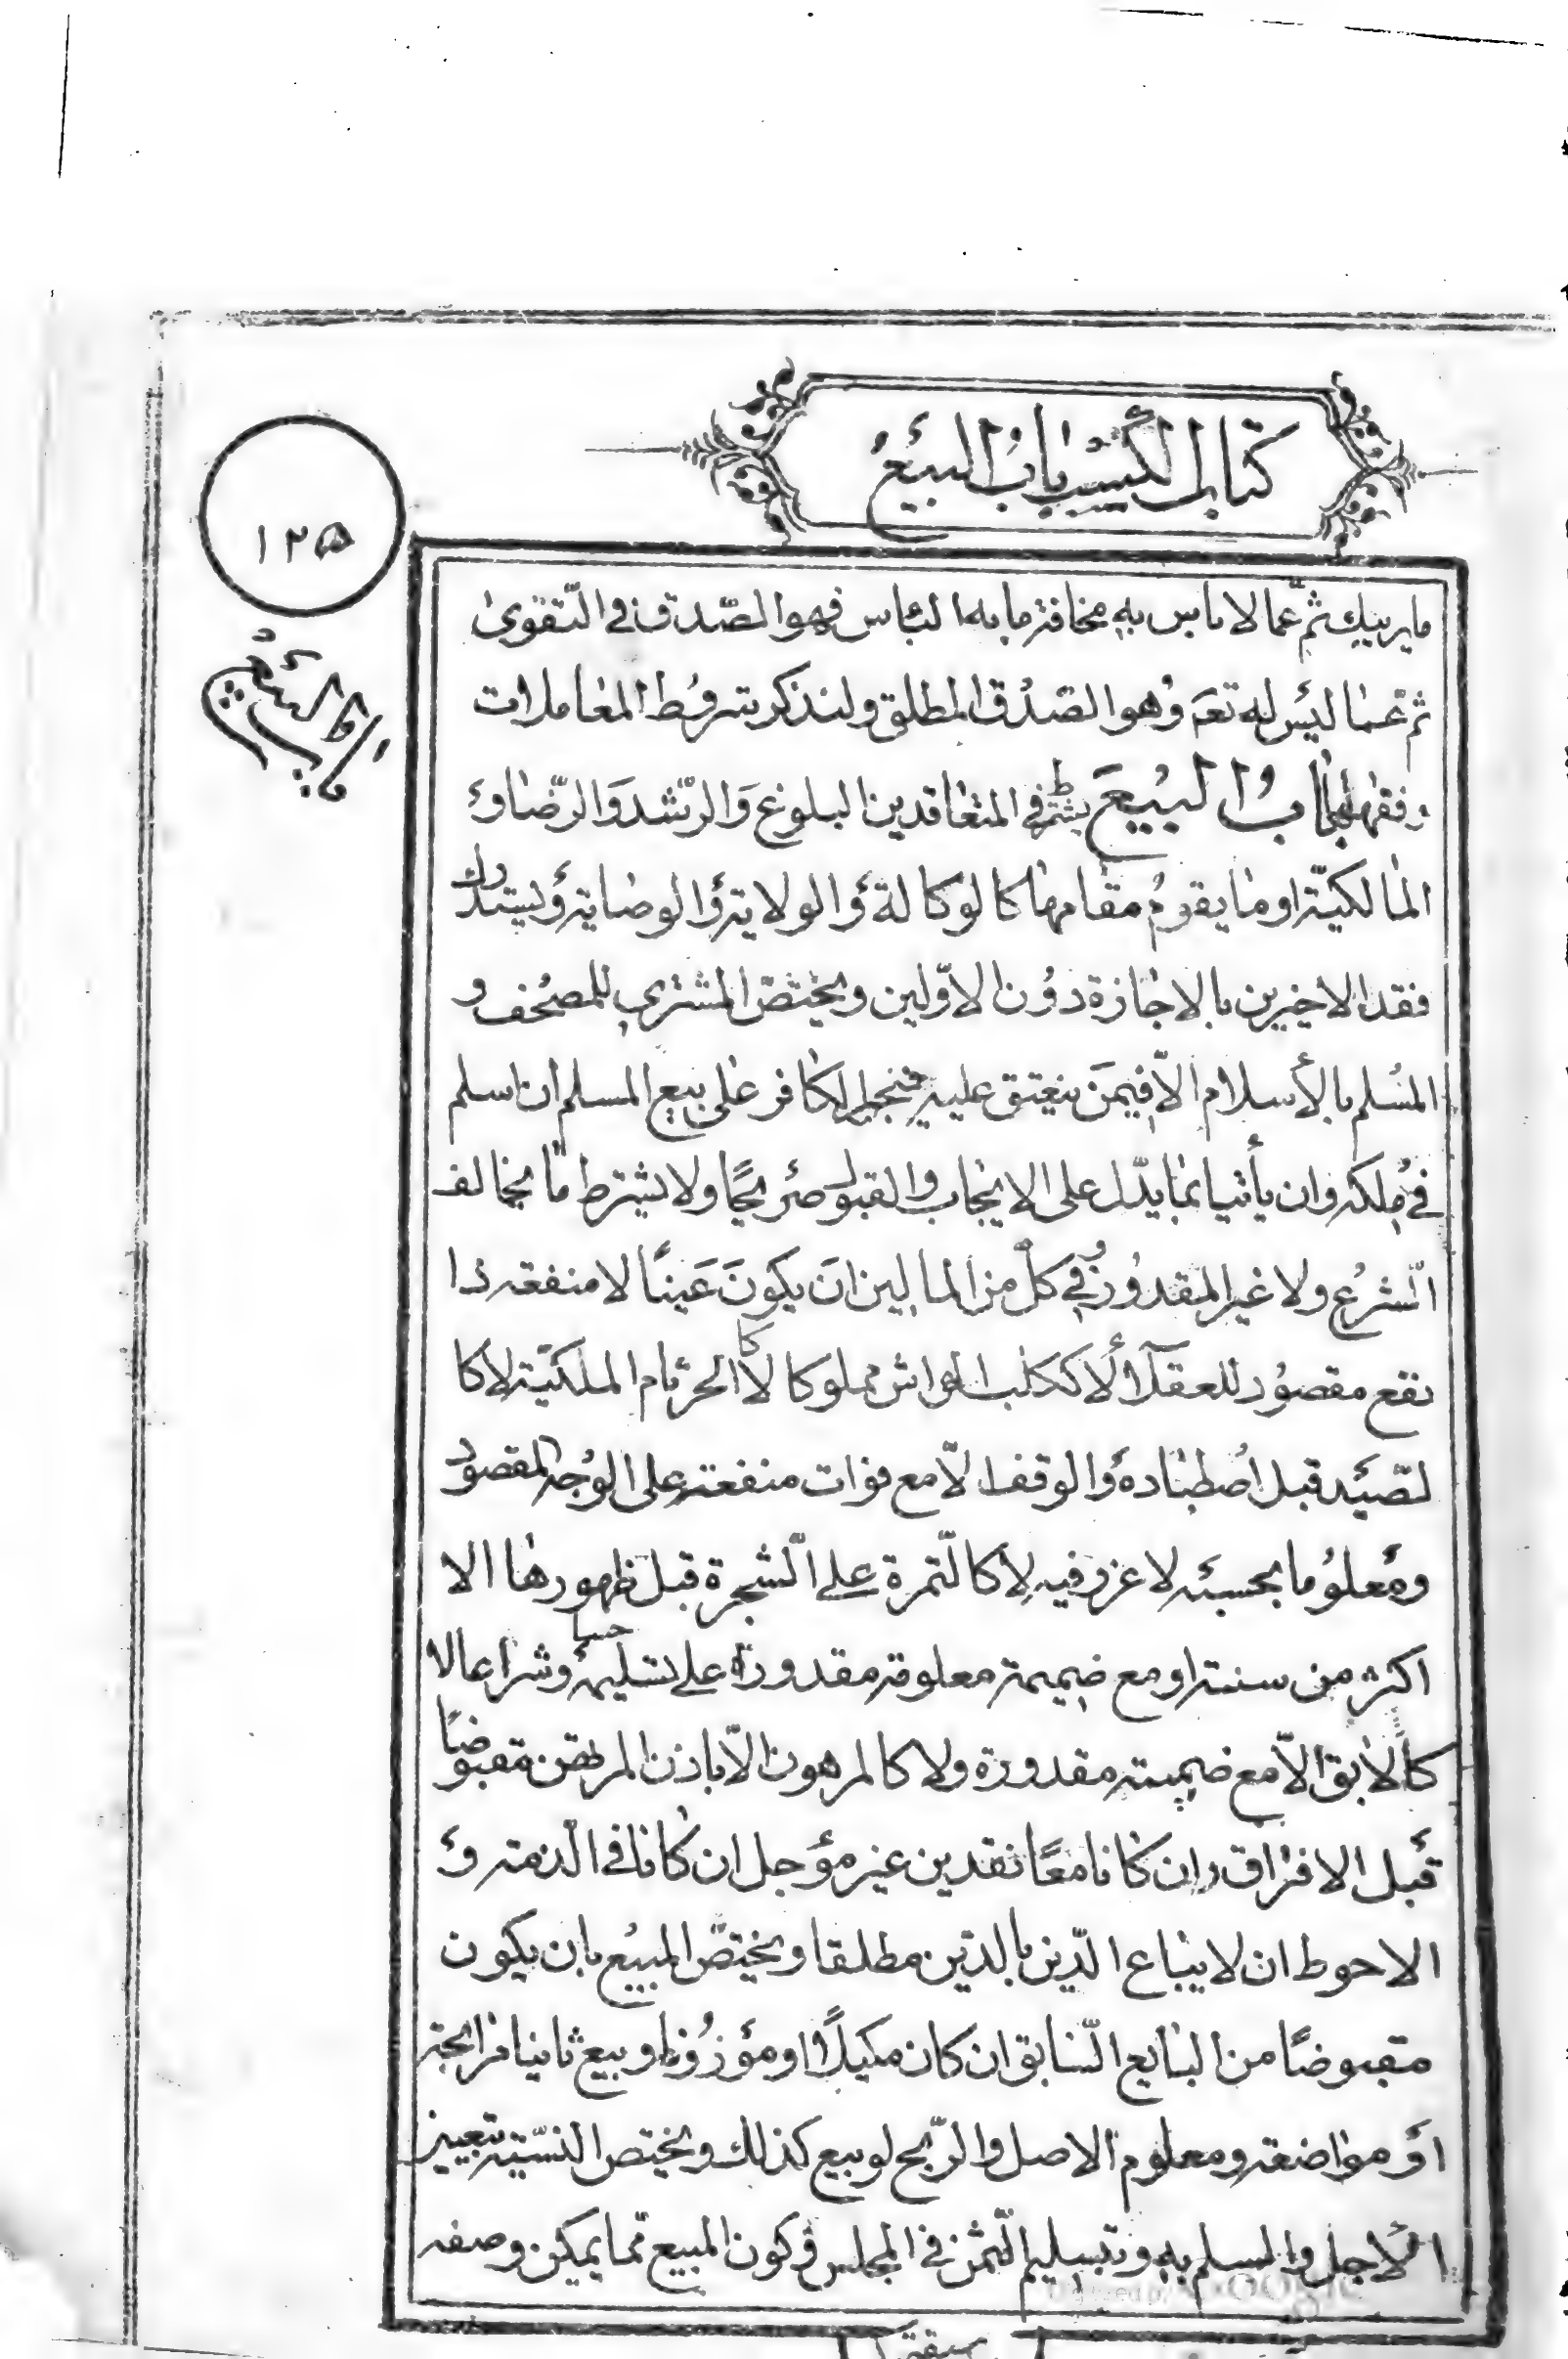 كتاب المكسب باب البيع
١٢٥
باب البيع
ما يريبك ثمّ عمّا لا باس به مخافة ما به الباس فهو الصّدق في التّقوى
ثم عمّا ليس له تعه وهو الصّدق المطلق ولنذكر شروط المعاملات
وفقهها باب البيع يشترط في المتعاقدين البلوغ والرّشد والرّضا و
المالكيّة او ما يقوم مقامها كالوكالة والولاية والوصاية ويستدرك
فقد الاخيرين بالاجازة دون الاوّلين ويختصّ المشتري للمصحف و
المسلم بالأسلام الّا فيمن ينعتق عليه فيجبر الكافر على بيع المسلم ان اسلم
في ملكه وان يأتيا بما يدّل على الايجاب والقبول صريحًا ولا يشترط ما يخالف
الشرع ولا غير المقدور وفي كلّ من المالين ان يكون عينًا لا منفعة ذا
نفع مقصود للعقلاء لا ككلب الهراش مملوكا لا كالحرّ تام الملكيّة لا كا
لصّيد قبل اصطياده والوقف الّا مع فوات منفعته على الوجه المقصود
ومعلوما بحسبه لا غرر فيه لا كالثّمرة على الشجرة قبل ظهورها الا
اكثر من سنة او مع ضميمة معلومة مقدورا على تسليمه حسا وشرعا لا
كالابق الّا مع ضميمة مقدورة ولا كالمرهون الّا باذن المرتهن مقبوضًا
قبل الافتراق ان كانا معًا نقدين غير مؤجل ان كانا في الذمة و
الاحوط ان لا يباع الدّين بالدّين مطلقا ويختصّ المبيع بان يكون
مقبوضًا من البايع السّابق ان كان مكيلًا او موزونا وبيع ثانيا مرابحة
او مواضعة ومعلوم الاصل والرّبح لو بيع كذلك ويختص النسيّة بتعيين
الاجل والسلم به وبتسليم الثّمن في المجلس وكون المبيع ممّا يمكن وصفه